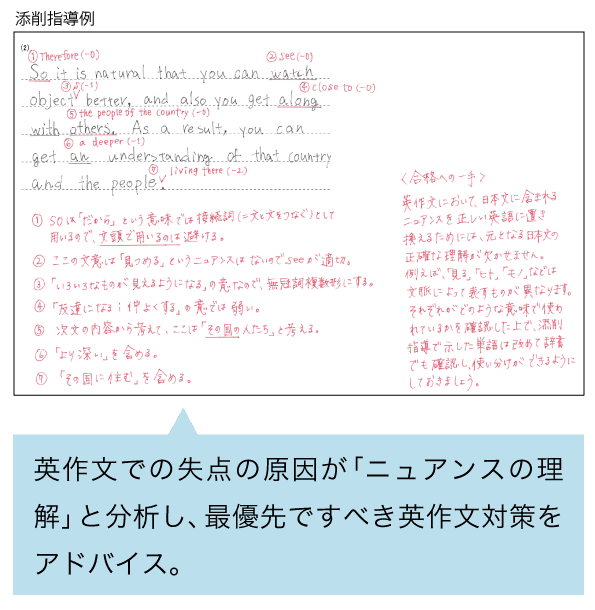 添削指導例
(2)
① Therefore (-0) ② see (-0)
So it is natural that you can watch
③ s (-1) ④ close to (-0)
object better, and also you get along
⑤ the people of the country (-0)
with others. As a result, you can
⑥ a deeper (-1)
get an understanding of that country
⑦ living there (-2)
and the people.
① soは「だから」という意味では接続詞(=文と文をつなぐ)として
用いるので、文頭で用いるのは避ける。
② ここの文意は「見つめる」というニュアンスはないのでseeが適切。
③ 「いろいろなものが見えるようになる」の意なので、無冠詞複数形にする。
④ 「友達になる；仲よくする」の意では弱い。
⑤ 次文の内容から考えて、ここは「その国の人たち」と考える。
⑥ 「より深い」を含める。
⑦ 「その国に住む」を含める。
〈合格への一手〉
英作文において、日本文に含まれる
ニュアンスを正しい英語に置き
換えるためには、元となる日本文の
正確な理解が欠かせません。
例えば、「見る」「ヒト」「モノ」などは
文脈によって表すものが異なります。
それぞれがどのような意味で使わ
れているかを確認した上で、添削
指導で示した単語は改めて辞書
でも確認し、使い分けができるように
しておきましょう。
英作文での失点の原因が「ニュアンスの理
解」と分析し、最優先ですべき英作文対策を
アドバイス。